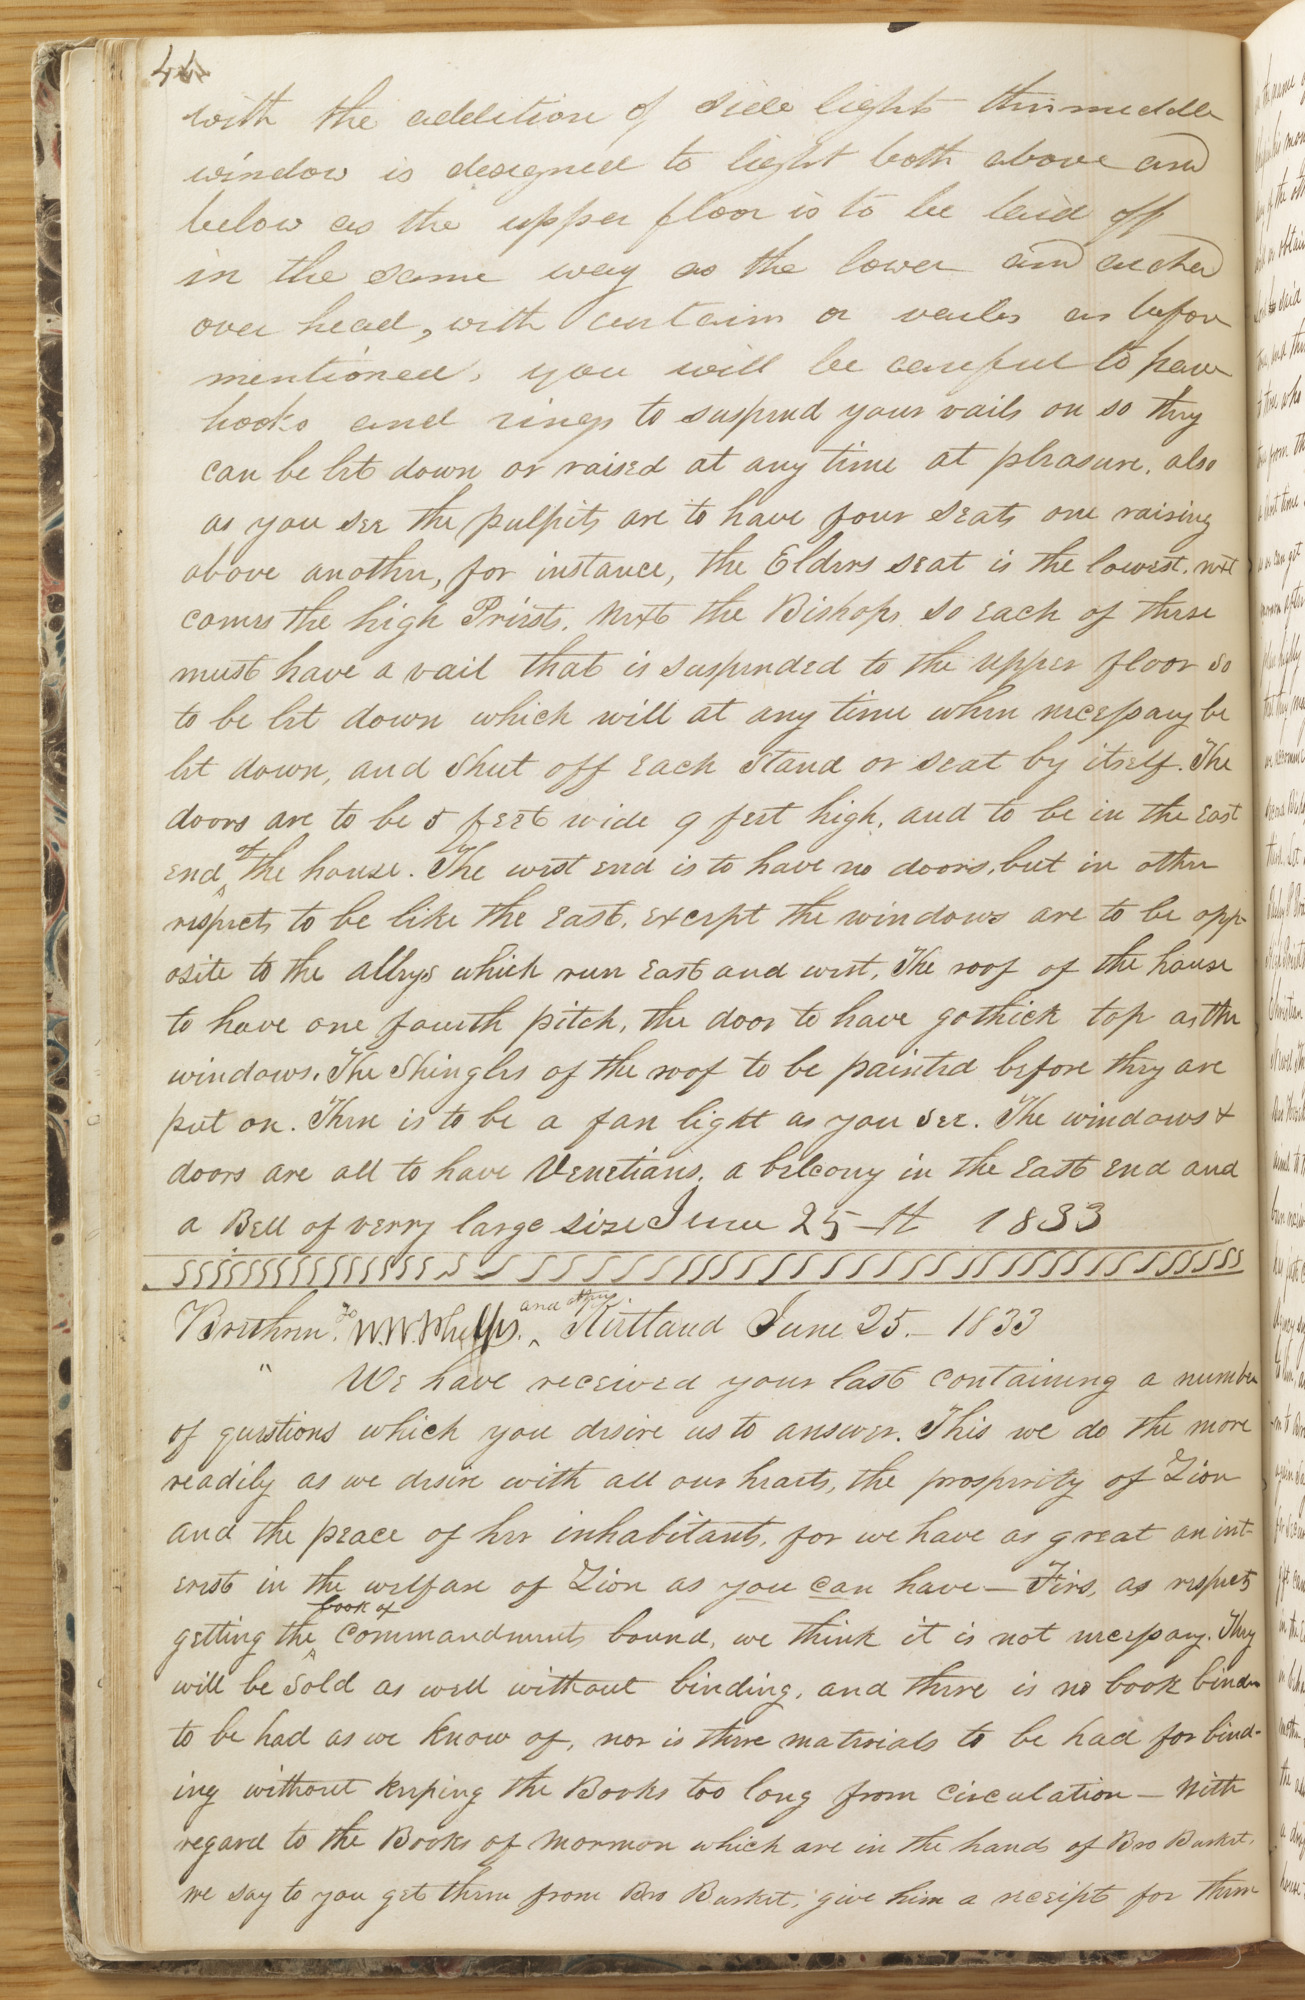 44
with the addition of side lights this middle
window is designed to light both above and
below as the upper floor is to be laid off
in the same way as the lower and arched
over head, with curtains or vailes as before
mentioned, you will be careful to have
hooks and rings to suspend your vails on so they
can be let down or raised at any time at pleasure, also
as you see the pulpits are to have four seats one raising
above another, for instance, the Elders seat is the lowest, next
comes the high Priests, next the Bishops so each of these
must have a vail that is suspended to the upper floor so
to be let down which will at any time when necessary be
let down, and shut off each stand or seat by itself. The
doors are to be 5 feet wide 9 feet high, and to be in the east
end of the house. The west end is to have no doors, but in other
respects to be like the east, except the windows are to be opp-
osite to the alleys which run east and west, The roof of the house
to have one fourth pitch, the door to have gothick top as the
windows. The shingles of the roof to be painted before they are
put on. There is to be a fan light as you see. The windows &
doors are all to have Venetians, a belcony in the east end and
a Bell of verry large size June 25th 1833
Brethren To W. W. Phelps. and others Kirtland June 25.– 1833
" We have received your last containing a number
of questions which you desire us to answer. This we do the more
readily as we desire with all our hearts, the prosperity of Zion
and the peace of her inhabitants, for we have as great an int-
erest in the welfare of Zion as you can have — Firs, as respects
getting the book of commandments bound, we think it is not necessary. They
will be sold as well without binding, and there is no book binder
to be had as we know of, nor is there materials to be had for bind-
ing without keeping the Books too long from circulation — With
regard to the Books of Mormon which are in the hands of Bro Burket,
we say to you get them from Bro Burket, give him a receipt for them